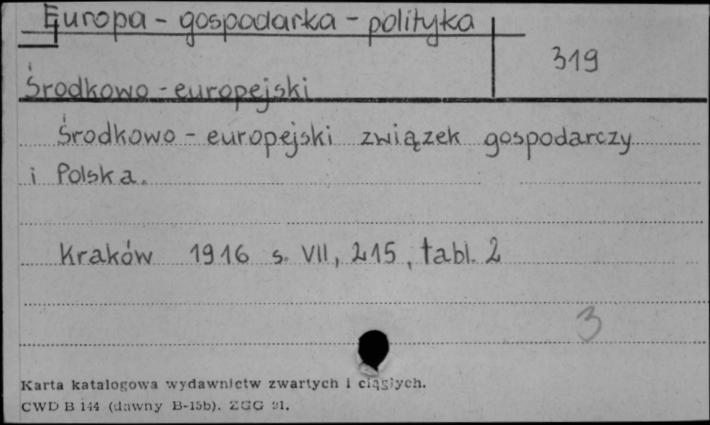 Europa - gospodarka - polityka
319
Środkowo - europejski
Środkowo - europejski związek gospodarczy
i Polska.
Kraków 1916 s. VII, 215, tabl. 2
3
Karta katalogowa wydawnictw zwartych i ciągłych.
CWD B 144 (dawny B-15b). ZGG